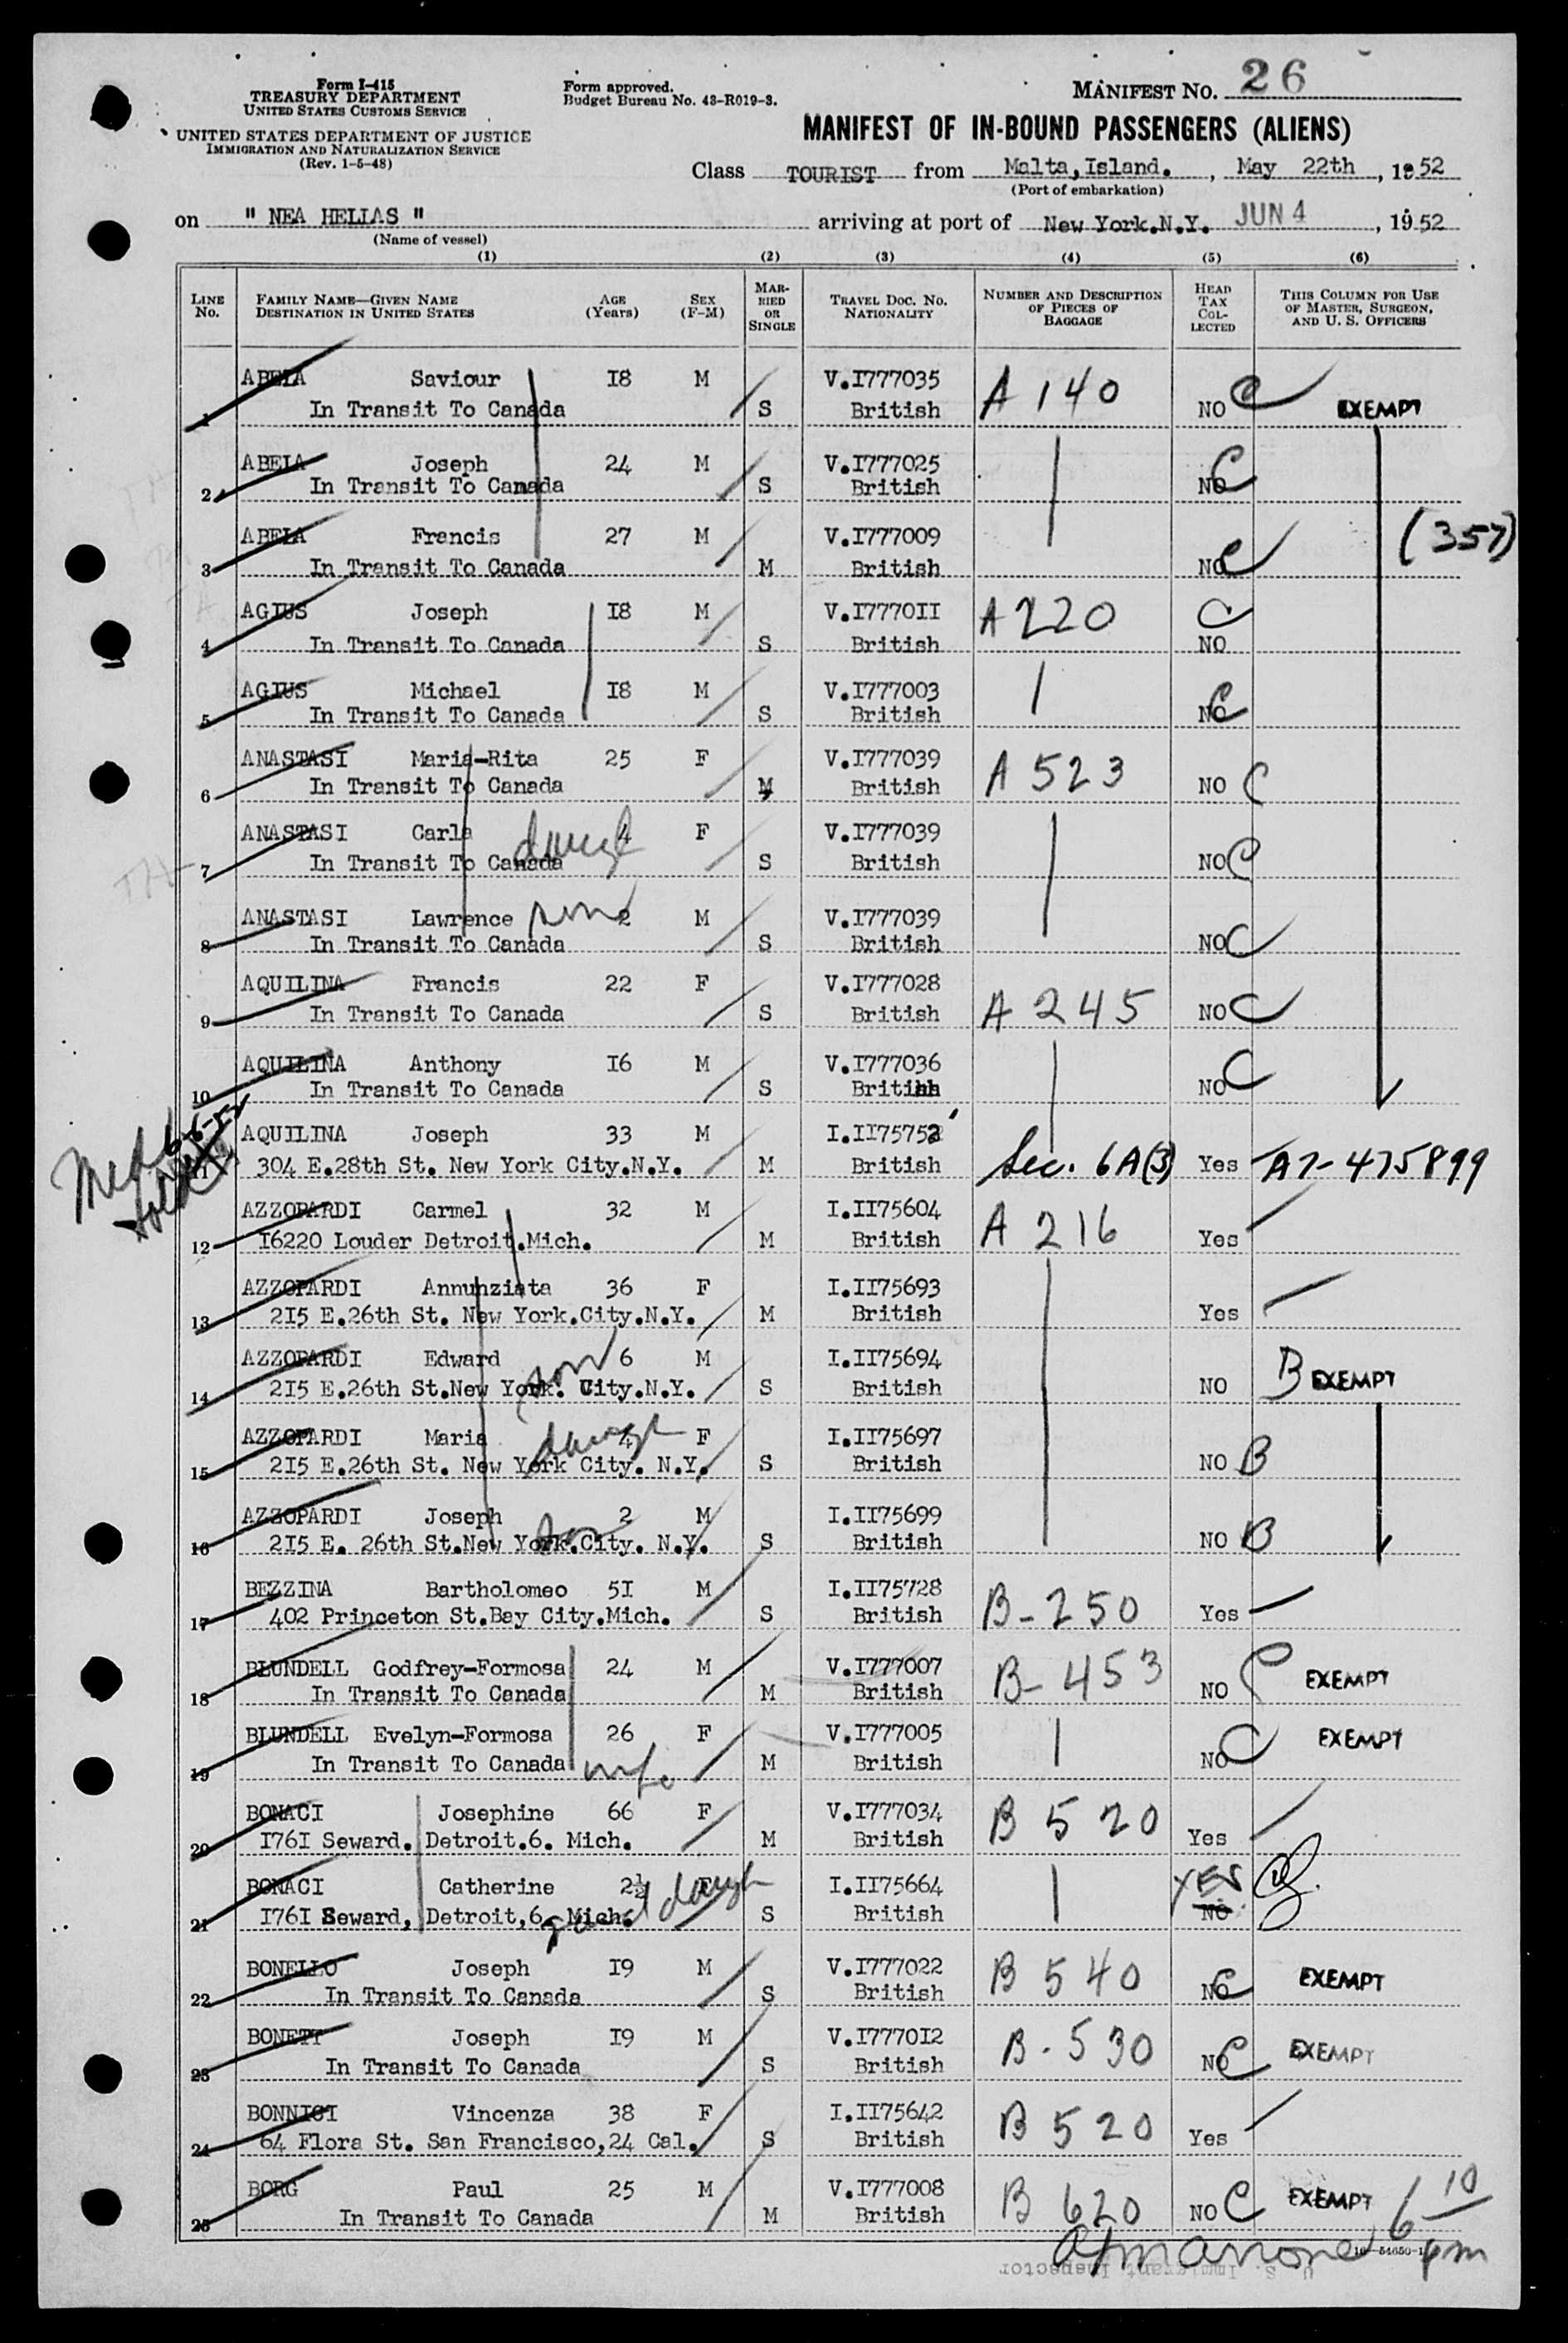 Form I-415
TREASURY DEPARTMENT
UNITED STATES CUSTOMS SERVICE
UNITED STATES DEPARTMENT OF JUSTICE
IMMIGRATION AND NATURALIZATION SERVICE
(Rev. 1-5-48)
Form approved.
Budget Bureau No. 43-R019-3.
MANIFEST NO. 26
MANIFEST OF IN-BOUND PASSENGERS (ALIENS)
Class TOURIST from Malta, Island. , May 22th , 1952
(Port of embarkation)
on " NEA HELLAS " arriving at port of New York.N.Y. JUN 4 , 1952
(Name of vessel)
(1) (2) (3) (4) (5) (6)
LINE NO. FAMILY NAME—GIVEN NAME DESTINATION IN UNITED STATES AGE (Years) SEX (F-M) MARRIED OR SINGLE TRAVEL DOC. NO. NATIONALITY NUMBER AND DESCRIPTION OF PIECES OF BAGGAGE HEAD TAX COLLECTED THIS COLUMN FOR USE OF MASTER, SURGEON, AND U. S. OFFICERS
ABELA Saviour I8 M V.I777035 A 140
1 In Transit To Canada S British NO C EXEMPT
ABELA Joseph 24 M V.I777025
2 In Transit To Canada S British NO C
ABELA Francis 27 M V.I777009 (357)
3 In Transit To Canada M British NO C
AGIUS Joseph I8 M V.I7770II A 220 C
4 In Transit To Canada S British NO
AGIUS Michael I8 M V.I777003
5 In Transit To Canada S British NO C
ANASTASI Maria-Rita 25 F V.I777039 A 523
6 In Transit To Canada M British NO C
ANASTASI Carla 4 F V.I777039
daugh
7 In Transit To Canada S British NO C
ANASTASI Lawrence son 2 M V.I777039
8 In Transit To Canada S British NO C
AQUILINA Francis 22 F V.I777028
9 In Transit To Canada S British A 245 NO C
AQUILINA Anthony I6 M V.I777036
10 In Transit To Canada S British NO C
6-6-52
AQUILINA Joseph 33 M I.II75752
11 304 E.28th St. New York City.N.Y. M British Sec. 6A(3) Yes A7-475899
AZZOPARDI Carmel 32 M I.II75604
12 I6220 Louder Detroit.Mich. M British A 216 Yes
AZZOPARDI Annunziata 36 F I.II75693
13 2I5 E.26th St. New York.City.N.Y. M British Yes
AZZOPARDI Edward son 6 M I.II75694
14 2I5 E.26th St.New York. City.N.Y. S British NO B EXEMPT
AZZOPARDI Maria daugh 4 F I.II75697
15 2I5 E.26th St. New York City. N.Y. S British NO B
AZZOPARDI Joseph 2 M I.II75699
son
16 2I5 E. 26th St.New York.City. N.Y. S British NO B
BEZZINA Bartholomeo 5I M I.II75728
17 402 Princeton St.Bay City.Mich. S British B-250 Yes
BLUNDELL Godfrey-Formosa 24 M V.I777007 B-453
18 In Transit To Canada M British NO C EXEMPT
BLUNDELL Evelyn-Formosa 26 F V.I777005 EXEMPT
19 In Transit To Canada wife M British NO C
BONACI Josephine 66 F V.I777034 B 520
20 I76I Seward. Detroit.6. Mich. M British Yes
BONACI Catherine 2½ F I.II75664 YES
grand daugh
21 I76I Seward, Detroit,6. Mich. S British NO
BONELLO Joseph I9 M V.I777022 B 540 EXEMPT
22 In Transit To Canada S British NO C
BONETT Joseph I9 M V.I7770I2 B-530 EXEMPT
23 In Transit To Canada S British NO C
BONNICI Vincenza 38 F I.II75642 B 520
24 64 Flora St. San Francisco,24 Cal. S British Yes
BORG Paul 25 M V.I777008 B 620 EXEMPT
25 In Transit To Canada M British NO C
6 10 pm
16—54650-1
U. S. Immigrant Inspector